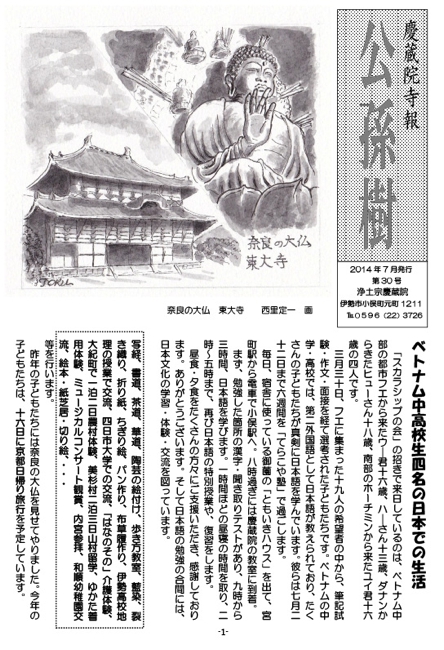 慶蔵院寺報
公孫樹
2014年7月発行
第30号
浄土宗慶蔵院
伊勢市小俣町元町1211
℡0596(22)3726
奈良の大仏
東大寺
奈良の大仏 東大寺 西里定一 画
ベトナム中高校生四名の日本での生活
「スカラシップの会」の招きで来日しているのは、ベトナム中
部の都市フエから来たウー君十六歳、ハーさん十三歳、ダナンか
らきたヒューさん十八歳、南部のホーチミンから来たユイ君十六
歳の四人です。
三月三十日、フエに集まった十九人の希望者の中から、筆記試
験・作文・面接を経て選考された子どもたちです。ベトナムの中
学・高校では、第二外国語として日本語が教えられており、たく
さんの子どもたちが真剣に日本語を学んでいます。彼らは七月二
十二日まで六週間を「てらこや塾」で過ごします。
毎日、宿舎に使っている御薗の「ともいきハウス」を出て、宮
町駅から電車で小俣駅へ。八時過ぎには慶蔵院の教室に到着。
まず、勉強した箇所の漢字・聞き取りテストがあり、九時から
三時間、日本語を学びます。一時間ほどの昼寝の時間を取り、二
時~五時まで、再び日本語の特別授業や、復習をします。
昼食・夕食をたくさんの方々にご支援いただき、感謝しており
ます。ありがとうございます。そして日本語の勉強の合間には、
日本文化の学習・体験・交流を図っています。
写経、書道、茶道、華道、陶芸の絵付け、歩き方教室、藍染、裂
き織り、折り紙、ちぎり絵、パン作り、布草履作り、伊勢高校地
理の授業で交流、四日市大学での交流、「はなのその」介護体験、
大紀町で一泊二日農村体験、美杉村二泊三日山村留学、ゆかた着
用体験、ミュージカルコンサート観賞、内宮参拝、和順幼稚園交
流、絵本・紙芝居・切り絵、・・・
等を行います。
昨年の子どもたちには奈良の大仏を見せてやりました。今年の
子どもたちは、十六日に京都日帰り旅行を予定しています。
-1-